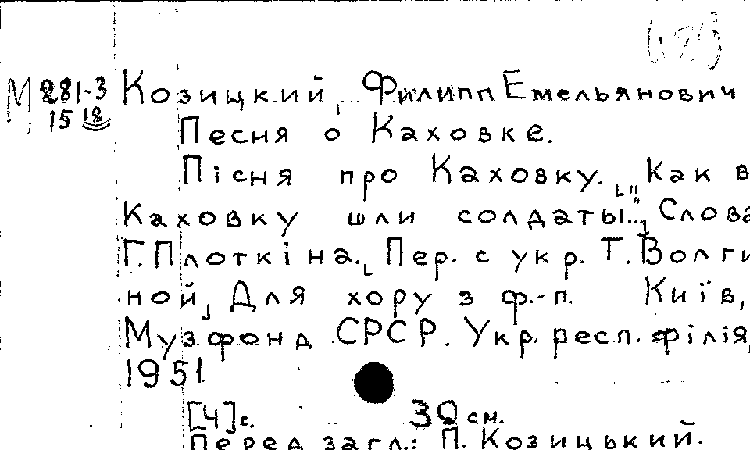 М 281-3 Козицкий, Филипп Емельянович
15 18
Песня о Каховке.
Пісня про Каховку. "Как в
Каховку шли солдаты..." Слова
Г. Плоткіна. [Пер. с укр. Т. Волги
ной] Для хору з ф.-п. Київ,
Музфонд СРСР. Укр. респ. філія,
1951
[4] с. 30 см.
Перед загл.: П. Козицький.